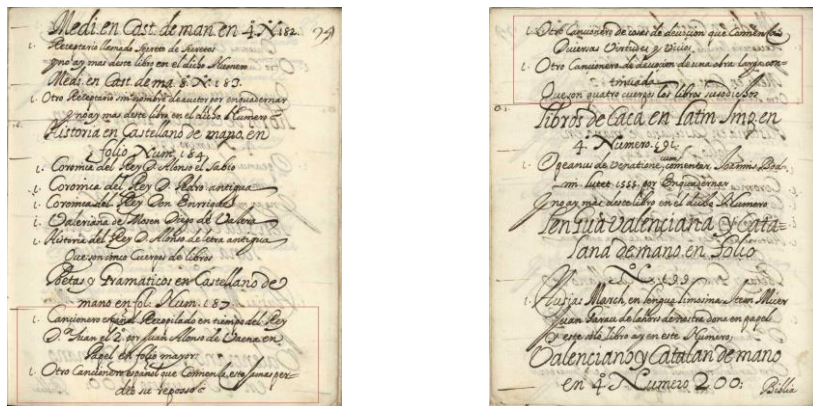 Medi. en Cast. de man. en 4. N. 182.
1. Receptario llamado secreto de secretos
y no ay mas deste libro en el dicho Numero
Medi. en Cast. de ma. 8. N. 183.
1. Otro Receptario sin nombre de auctor por enquadernar
y no ay mas deste libro en el dicho Numero
Historia en Castellano de mano, en
folio Num. 184.
1. Coronica del Rey D. Alonso el Sabio
1. Coronica del Rey D. Pedro antigua
1. Coronica del Rey Don Enrrique
1. Valeriana de Mosen Diego de Valera
1. Historia del Rey D. Alonso de letra antigua
Que son cinco Cuerpos de libros
Poetas y Gramaticos en Castellano de
mano en fol. Num. 187.
1. Cancionero español Recopilado en tiempo del Rey
D. Juan el 2. por Juan Alonso de Vaena, en
Papel en folio mayor
1. Otro Cancionero español que Comiença, este jamas per-
dio su reposso
1. Otro Cancionero de cosas de devoçion que Comiença
Quienes Virtudes y Vicios
1. Otro Cancionero de devoçion de una obra larga con-
tinuada
Que son quatro cuerpos los libros susodichos
libros de Caça en Latin Imp. en
4. Numero. 191.
1. de Venatione, cum comentar. Joannis Bod-
ini. Lutet. 1555. por Enquadernar
y no ay mas deste libro en el dicho Numero
lengua Valenciana y Cata=
lana de mano, en folio
N.º 199.
1. Ausias March, en lengua limosina Item Micer
Juan de lahors de nostra dona en papel
y este solo libro ay en este Numero,
Valenciano y Catalan de mano
en 4.º Numero 200.
Biblia